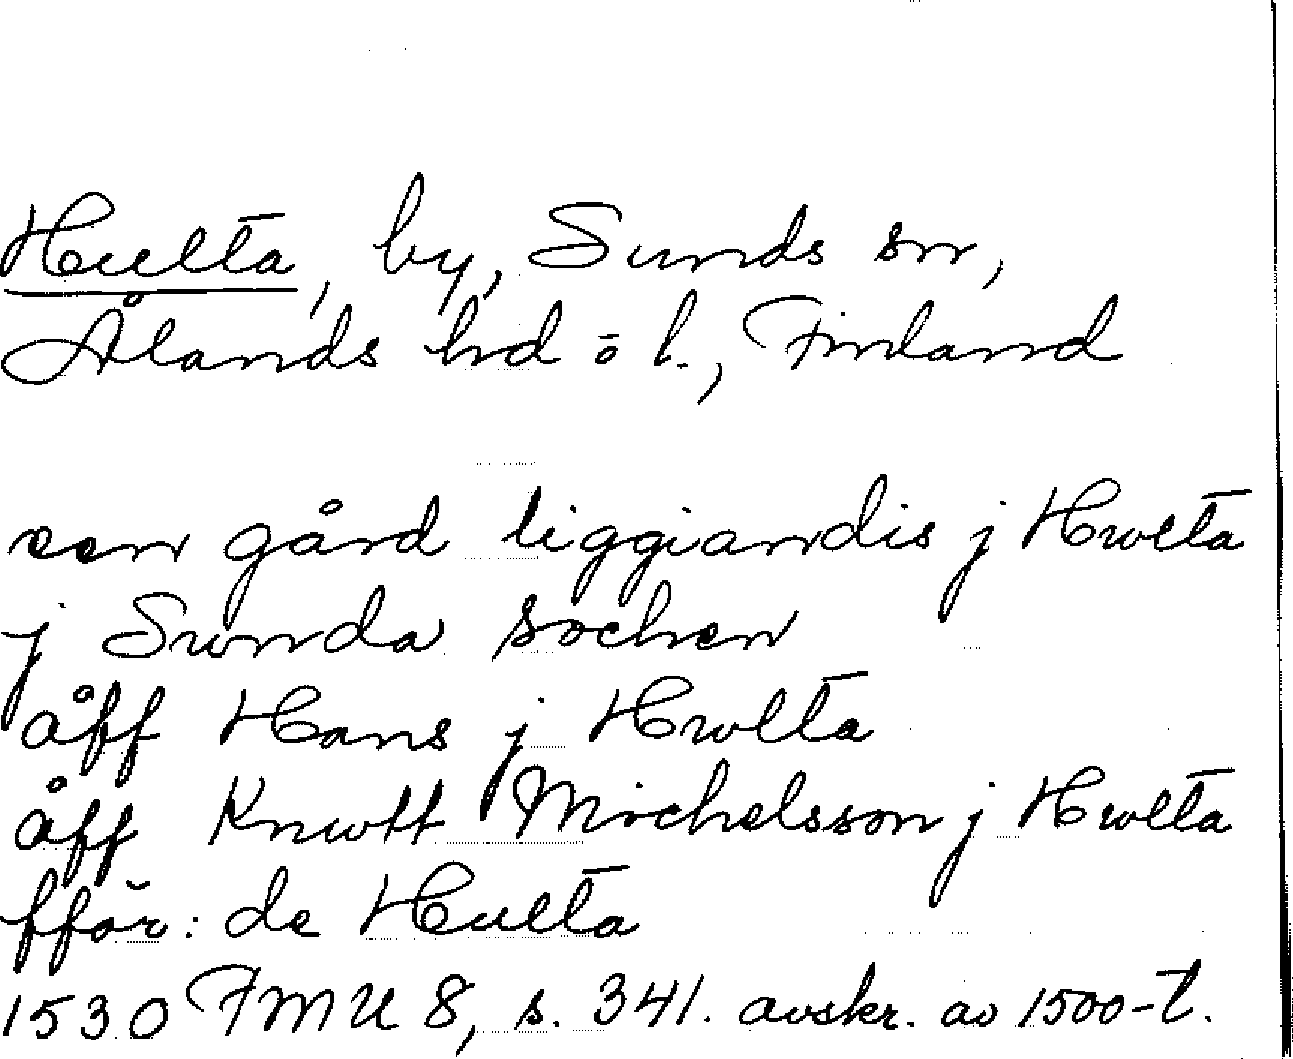 Hulta, by, Sunds sn,
Ålands hd ö l., Finland
een gård liggiandis j Hwlta
j Swnda sochen
åff Hans j Hwlta
åff Knwtt Michelsson j Hwlta
fför: de Hulta
1530 FMU 8, s. 341. avskr. av 1500-t.